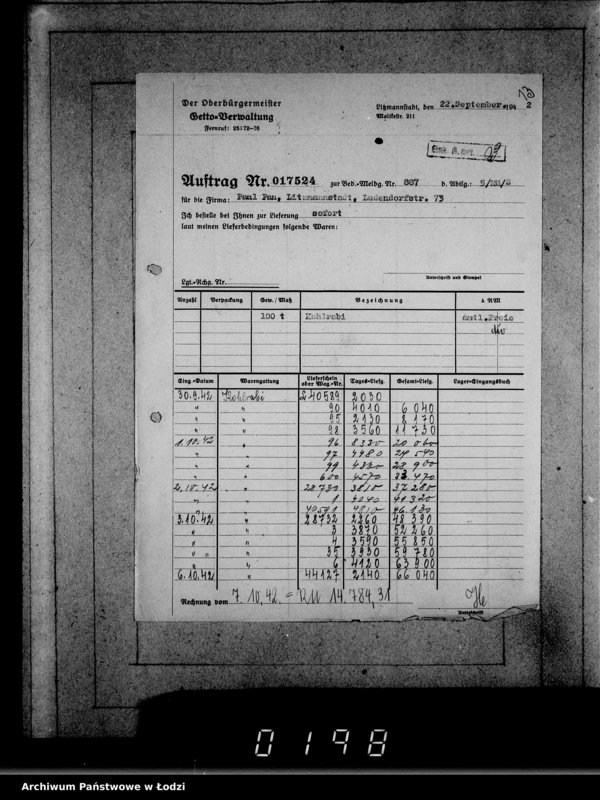 Der Oberbürgermeister
Getto-Verwaltung
Fernruf: 25172-76
Litzmannstadt, den 22.September 194 2
Moltkestr. 211
Auftrag Nr. 017524 zur Bed.-Meldg. Nr. 867 d. Abtlg.:
für die Firma: Paul Pan, Litzmannstadt, Ludendorfstr. 73
Ich bestelle bei Ihnen zur Lieferung sofort
laut meinen Lieferbedingungen folgende Waren:
Unterschrift und Stempel
Lgt.-Rchg. Nr.
Anzahl Verpackung Gew./Maß Bezeichnung à RM
100 t Kohlrabi amtl.Preis
Eing.-Datum Warengattung Lieferschein oder Wag.-Nr. Tages-Liefg. Gesamt-Liefg. Lager-Eingangsbuch
30.9.42 Kohlrabi 40589 2030
" " 90 4010 6 040
" " 95 2130 8 170
" " 98 3560 11 730
1.10.42 " 96 8330 20 060
" " 97 4480 24 540
" " 99 28 900
" " 600 4570 33 470
2.10.42 " 28730 3810 37 280
" " 1 4040 41 320
" 40591 4810 46 130
3.10.42 " 28732 2260 48 390
" " 3 3870 52 260
" " 4 3590 55 850
" " 35 3930 59 780
" " 6 4120 63 900
6.10.42 " 44127 2140 66 040
Rechnung vom 7.10.42. = RM 14.784,31
Unterschrift
0198
Archiwum Państwowe w Łodzi